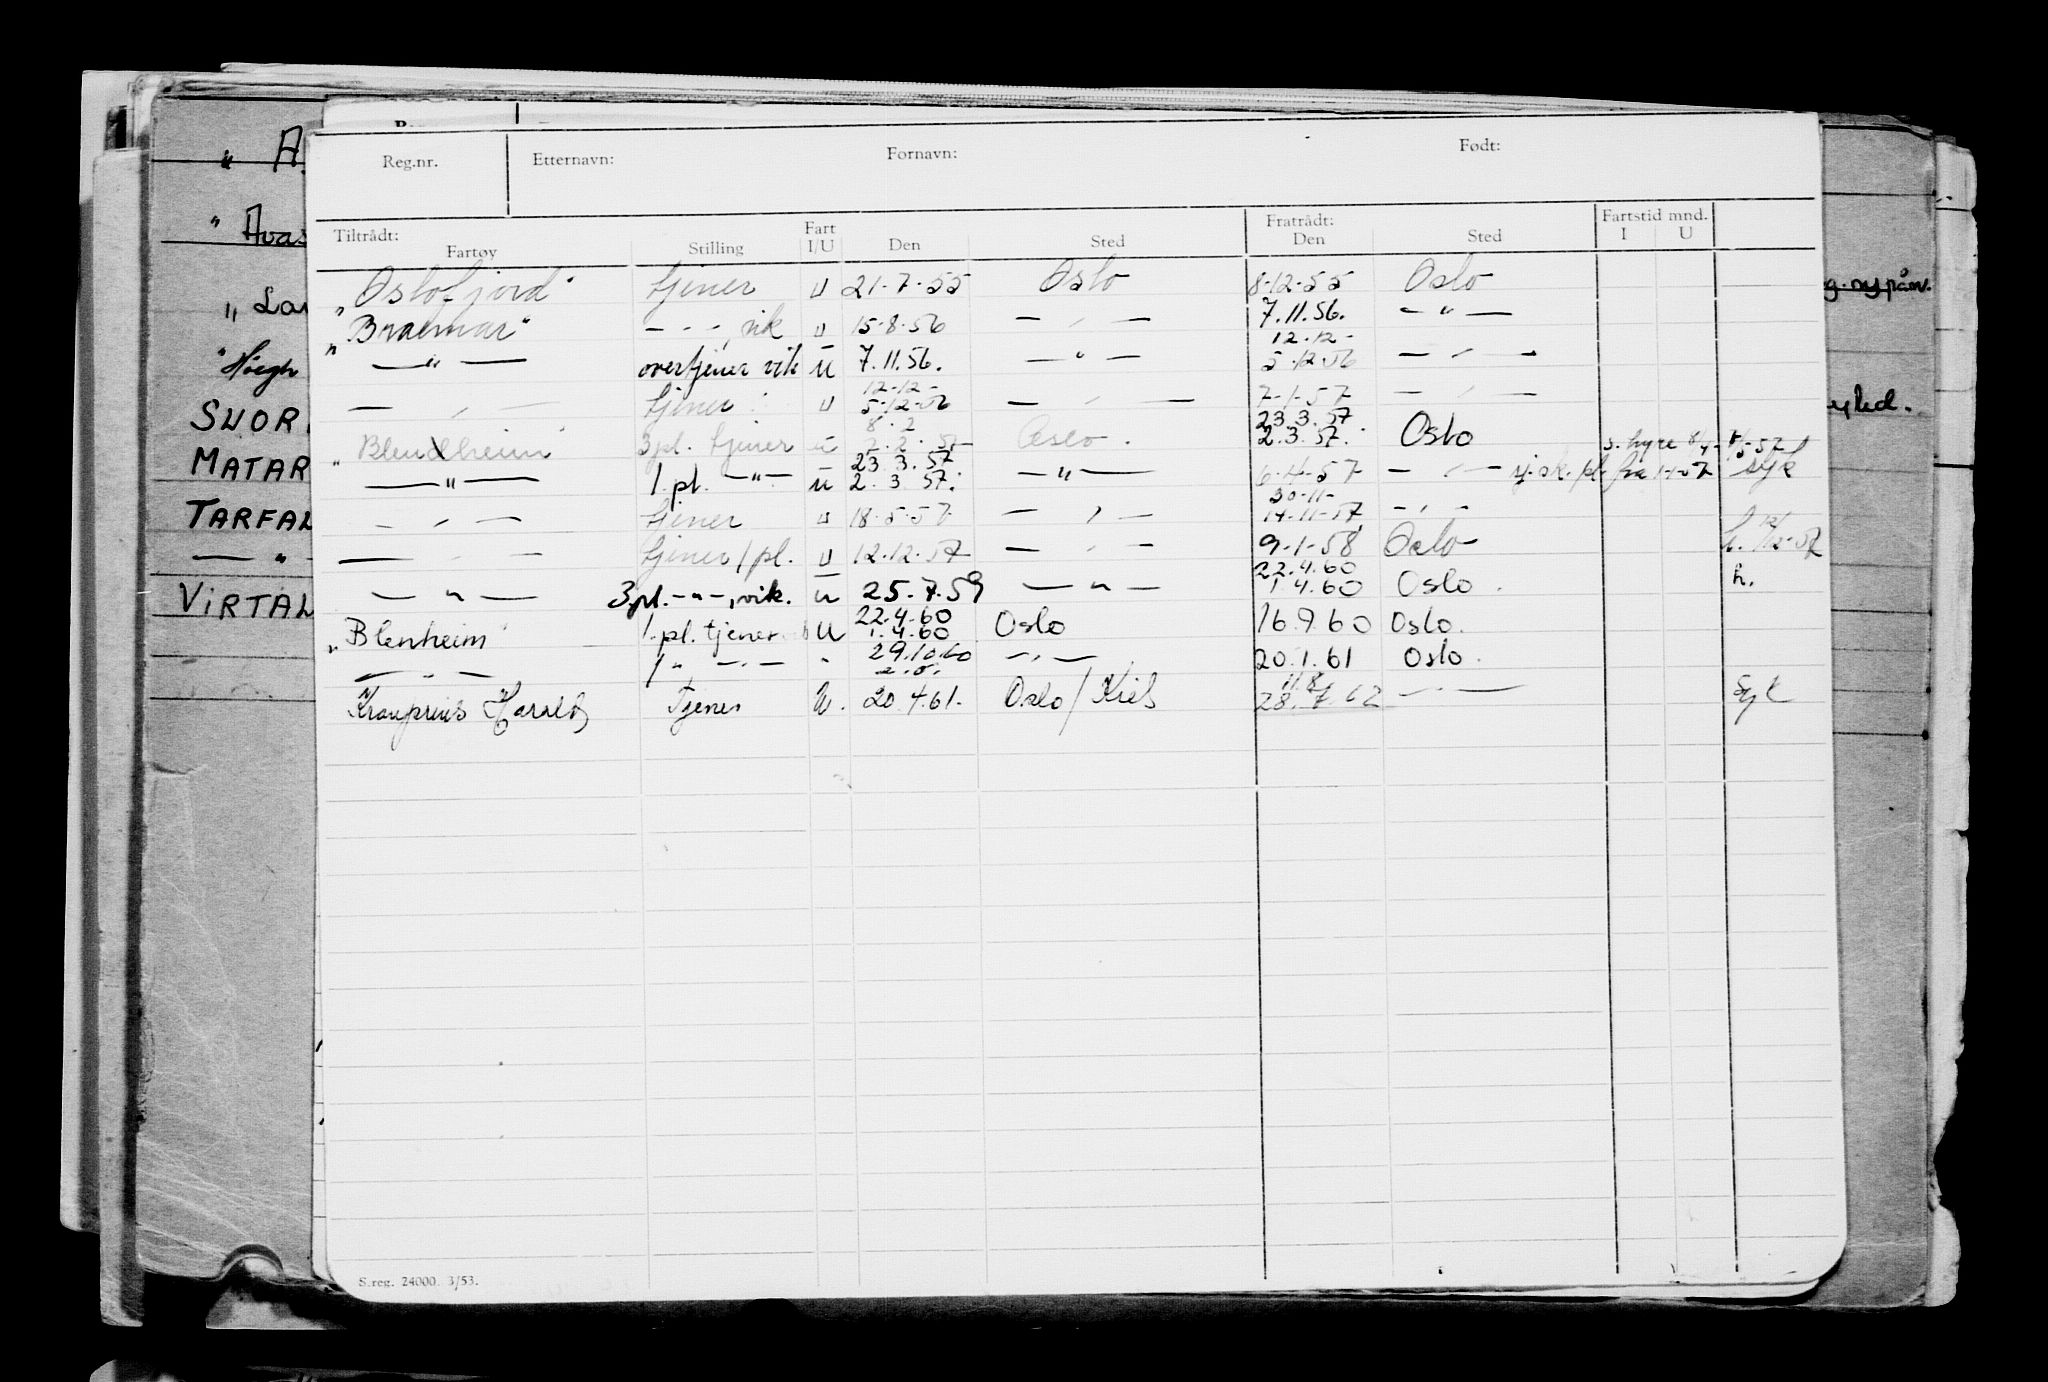 Reg.nr. Etternavn: Fornavn: Født:
Tiltrådt: Fart Fratrådt: Fartstid mnd.
Fartøy Stilling I/U Den Sted Den Sted I U
"Oslofjord" tjener U 21-7-55 Oslo 8-12-55 Oslo
"Braemar" — " —, vik U 15-8-56 — " — 7.11.56. — " —
12-12-
— " — overtjener vik U 7.11.56. — " — 5-12-56 — " —
12-12-
— " — tjener U 5-12-56 — " — 7-1-57 — " —
8-2 23.3.57
"Blendheim" 3pl. tjener U 7-2-57 Oslo. 2.3.57. Oslo s. hyre 8/4- 8/5-57
23.3.57
— " — 1.pl. — " — U 2.3.57. — " — 6-4-57 — " — sj.sk./pl. fra 1-1-57 syk
30-11-
— " — tjener U 18-5-57 — " — 14-11-57 — " —
— " — tjener/pl. U 12-12-57 — " — 9-1-58 Oslo h. 12/12-57
22.4.60
— " — 3pl. — " —, vik. U 25.7.59 — " — 1.4.60 Oslo. h.
22.4.60
"Blenheim" 1.pl. tjener U 1.4.60 Oslo 16.9.60 Oslo.
— " — 1 " — " — " 29.10.60 — " — 20.1.61 Oslo.
2.5. 11.8.
Kronprins Harald Tjener U. 20.4.61. Oslo/Kiel 28.7.62 — " — Syk
S.reg. 24000. 3/53.
"Høegh
SUOR
MATAR
TARFAL
— " —
VIRTAL